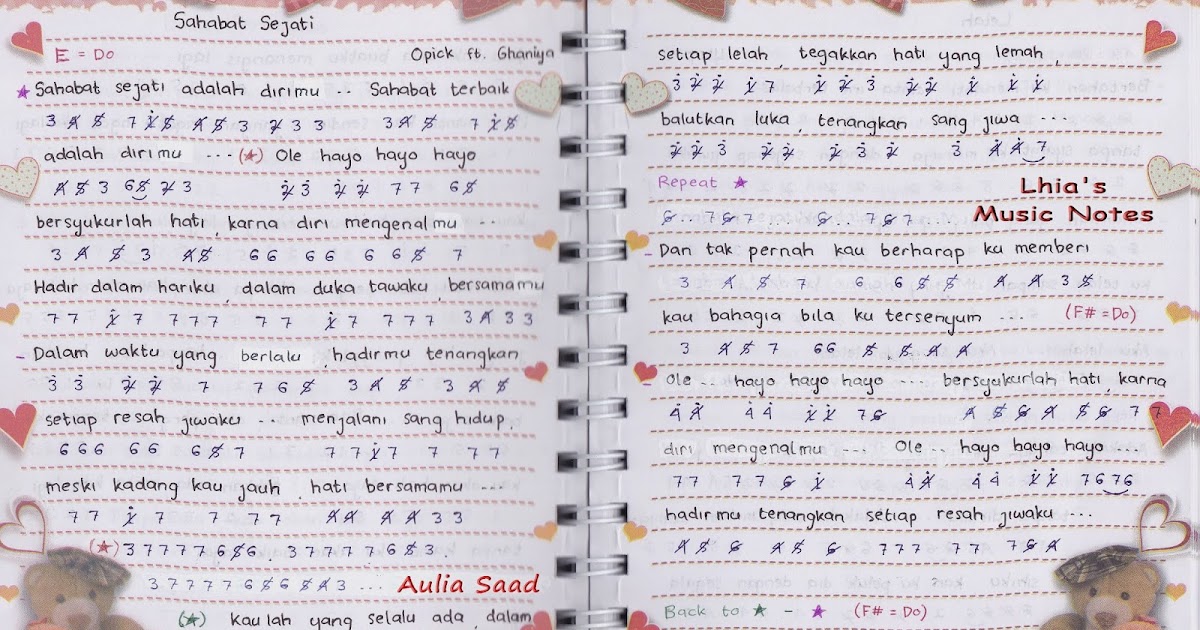 Sahabat Sejati
E = Do Opick ft. Ghaniya
★ Sahabat sejati adalah dirimu ... Sahabat terbaik
3 4 5 7 1 5 4 5 3 2 3 3 3 4 5 7 1 5
adalah dirimu ... (★) Ole hayo hayo hayo
4 5 3 6 5 2 3 2 3 2 2 7 7 6 5
bersyukurlah hati, karna diri mengenalmu ...
3 4 5 3 4 5 6 6 6 6 6 6 5 7
Hadir dalam hariku, dalam duka tawaku, bersamamu
7 7 1 7 7 7 7 7 7 1 7 7 7 7 3 4 3 3
- Dalam waktu yang berlalu, hadirmu tenangkan
3 3 2 2 7 7 6 5 3 4 5 3 4 5
setiap resah jiwaku ... menjalani sang hidup,
6 6 6 6 6 6 5 7 7 7 1 7 7 7 7
meski kadang kau jauh, hati bersamamu ...
7 7 1 7 7 7 7 4 4 4 4 3 3
(★) 3 7 7 7 7 6 5 6 3 7 7 7 7 6 5 3 .
3 7 7 7 7 6 5 6 5 4 3 ...
Aulia Saad
(★) Kau lah yang selalu ada, dalam
setiap lelah, tegakkan hati yang lemah,
3 2 2 1 7 1 2 3 2 2 1 1 1
balutkan luka, tenangkan sang jiwa ...
2 2 3 2 2 2 3 2 3 4 4 7
Repeat ★
Lhia's
Music Notes
6 .. 7 6 7 ... 6 .. 7 6 7 ....
- Dan tak pernah kau berharap ku memberi
3 4 5 7 6 6 5 5 4 4 3 5
kau bahagia bila ku tersenyum ... (F# = Do)
3 4 5 7 6 6 5 5 4 4
- Ole ... hayo hayo hayo .... bersyukurlah hati, karna
4 4 4 4 1 1 7 6 4 5 6 4 5 6 7 7
diri mengenalmu .... Ole .. hayo hayo hayo ....
7 7 7 7 6 1 4 4 4 4 1 1 7 6 7 6
hadirmu tenangkan setiap resah jiwaku ...
4 5 6 4 5 6 7 7 7 7 7 7 6 4
Back to ★ - ★ (F# = Do)